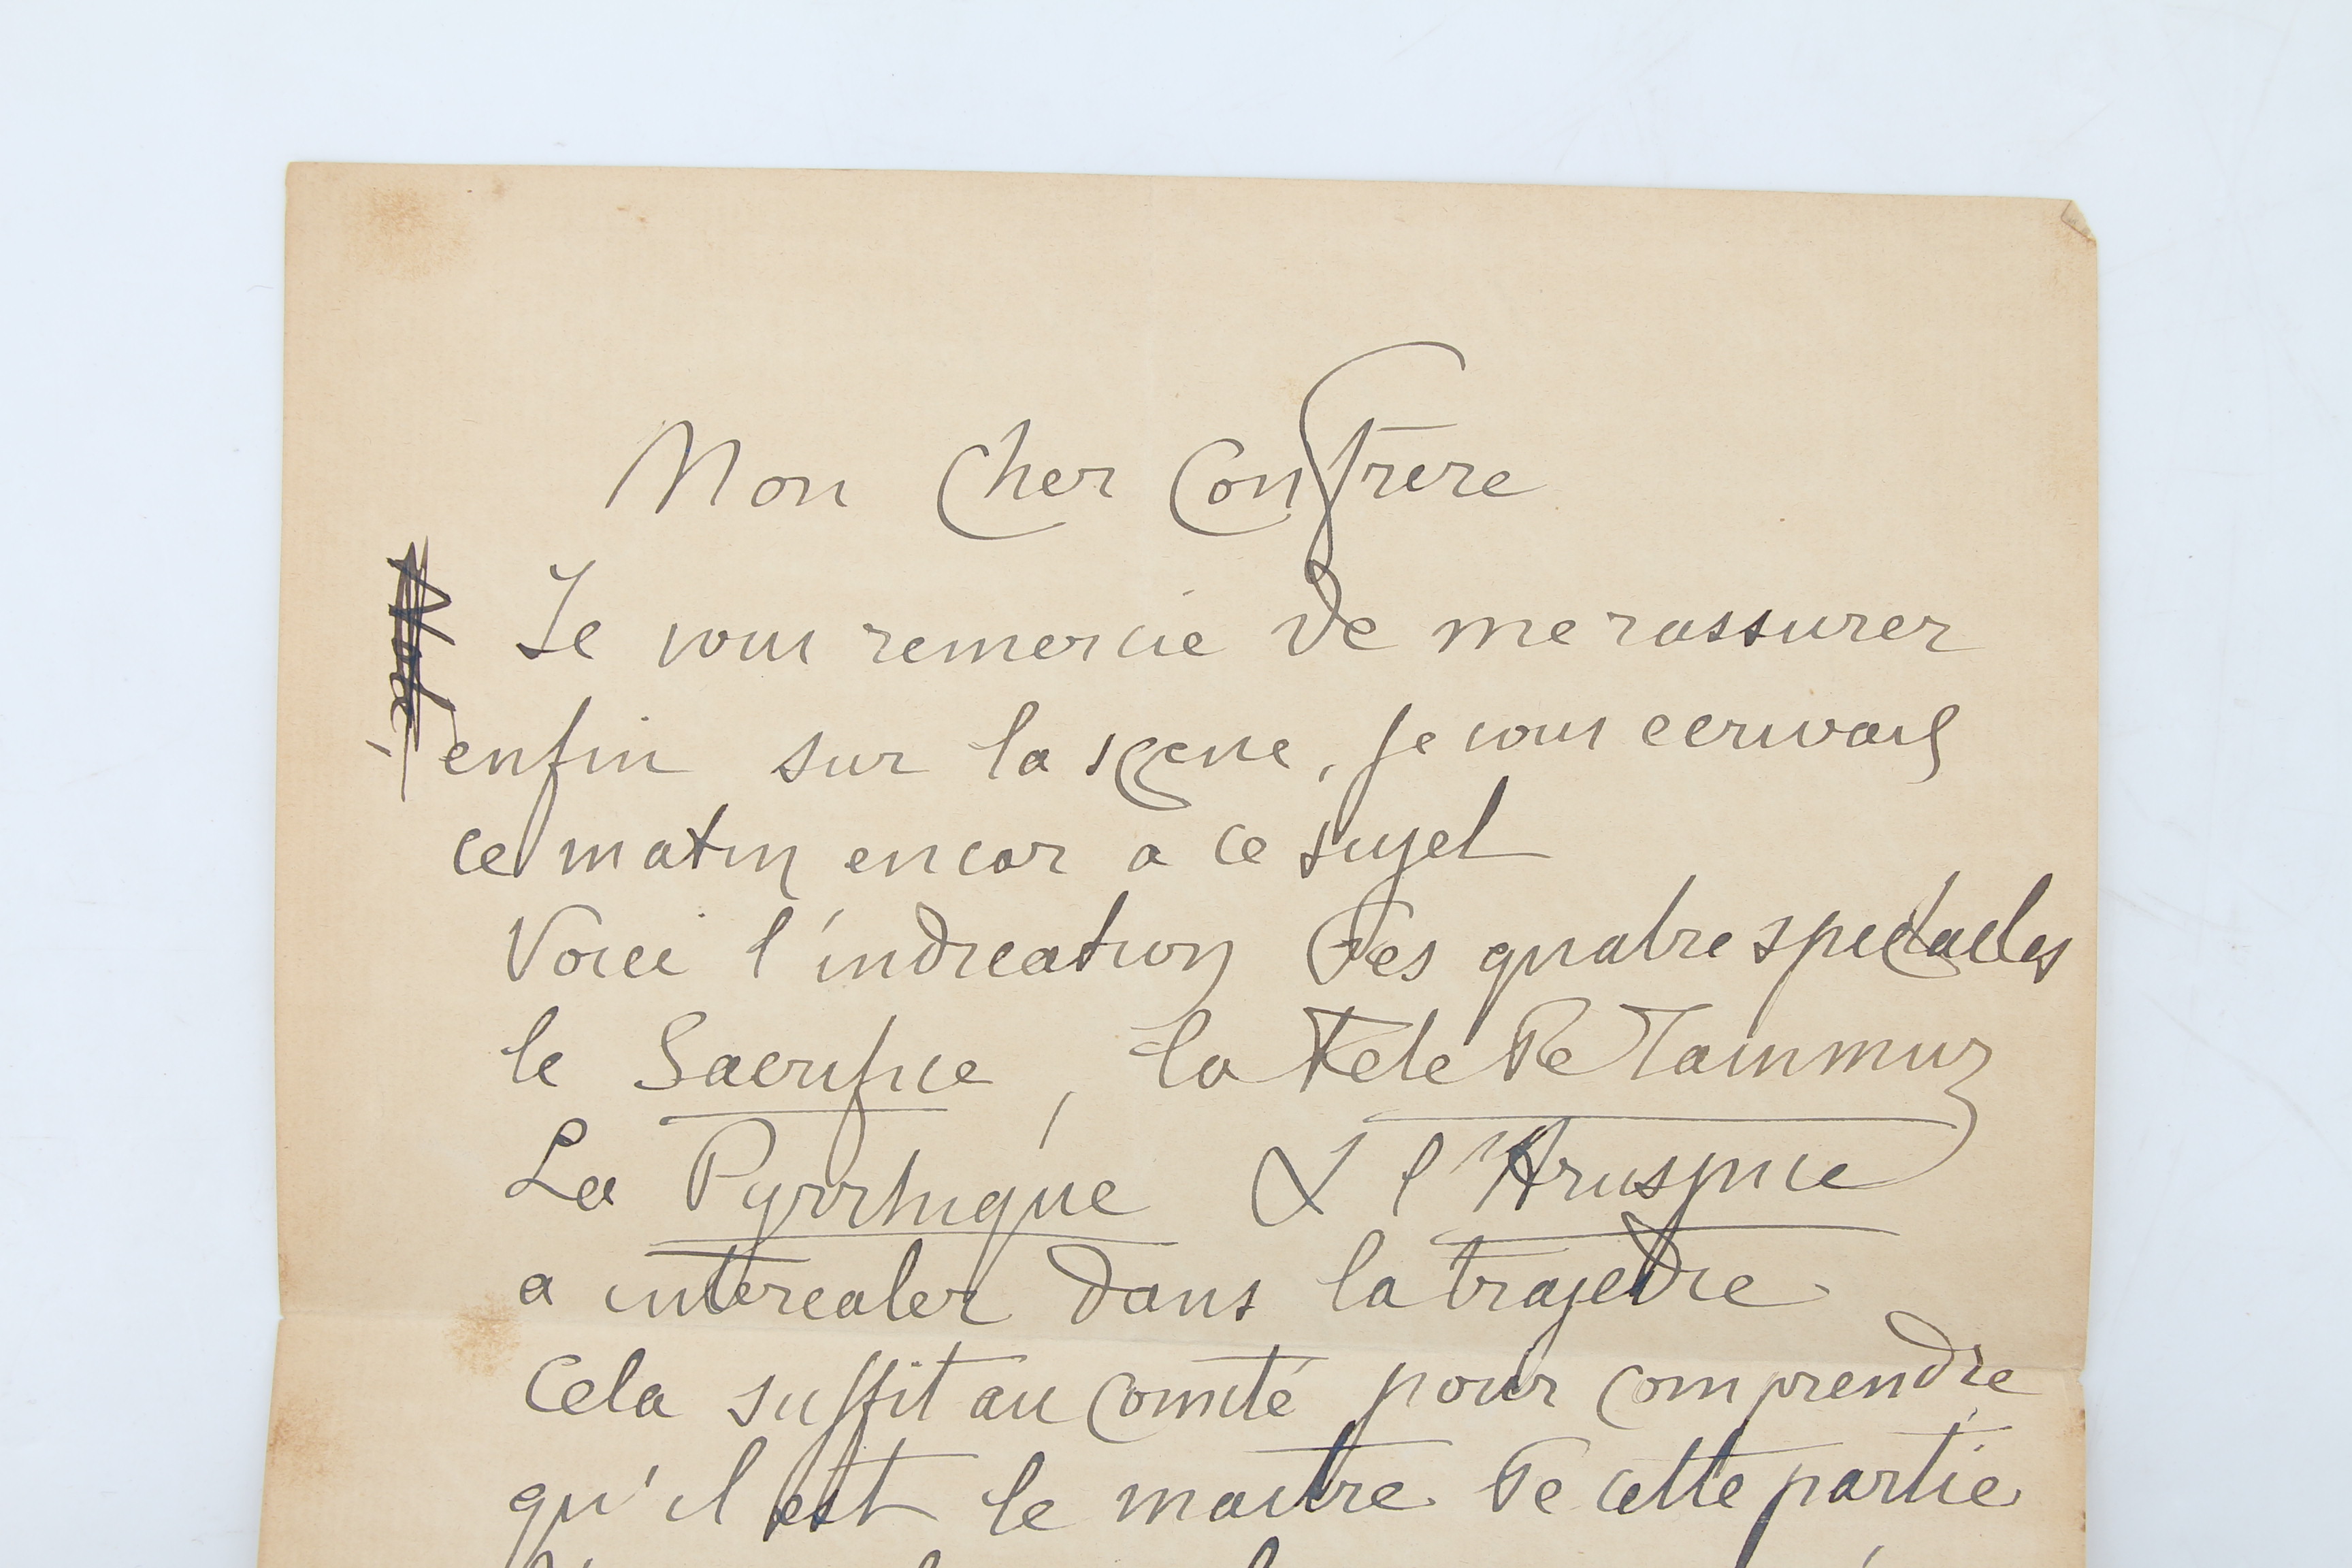 Mon Cher Confrere
Je vous remercie de me rassurer
enfin sur la scene, je vous ecrivais
ce matin encor a ce sujet
Voici l'indication des quatre spectacles
le Sacrifice, la Fete de Tammuz
La Pyrrhique & l'Aruspice
a intercaler dans la tragedie
Cela suffit au comité pour comprendre
qu'il est le maitre de cette partie